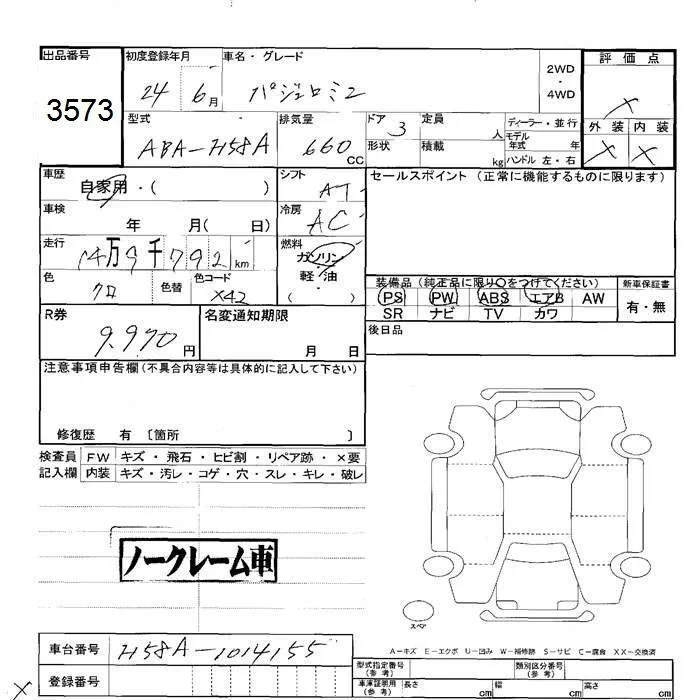 出品番号 初度登録年月 車名・グレード 評価点
3573 24 6月 パジェロミニ 2WD・4WD X
型式 排気量 ドア 3 定員 人 ディーラー・並行 外装 内装
ABA-H58A 660 CC 形状 積載 kg モデル年式 年 ハンドル 左・右 X X
車歴 自家用・( ) シフト AT セールスポイント (正常に機能するものに限ります)
車検 年 月( 日) 冷房 AC
走行 14万9千792 km 燃料 ガソリン 軽・油 ( )
色 クロ 色替 色コード X42
装備品(純正品に限り○をつけてください) 新車保証書
PS PW ABS エアB AW 有・無
SR ナビ TV カワ
R券 9,970円 名変通知期限 月 日 後日品
注意事項申告欄(不具合内容等は具体的に記入して下さい)
修復歴 有 〔箇所 〕
検査員 FW キズ・飛石・ヒビ割・リペア跡・×要
記入欄 内装 キズ・汚レ・コゲ・穴・スレ・キレ・破レ
ノークレーム車
スペア
A-キズ E-エクボ U-凹み W-補修跡 S-サビ C-腐食 XX-交換済
車台番号 H58A-1014155 型式指定番号(参考) 類別区分番号(参考)
登録番号 車庫証明用(参考) 長さ cm 幅 cm 高さ cm
X